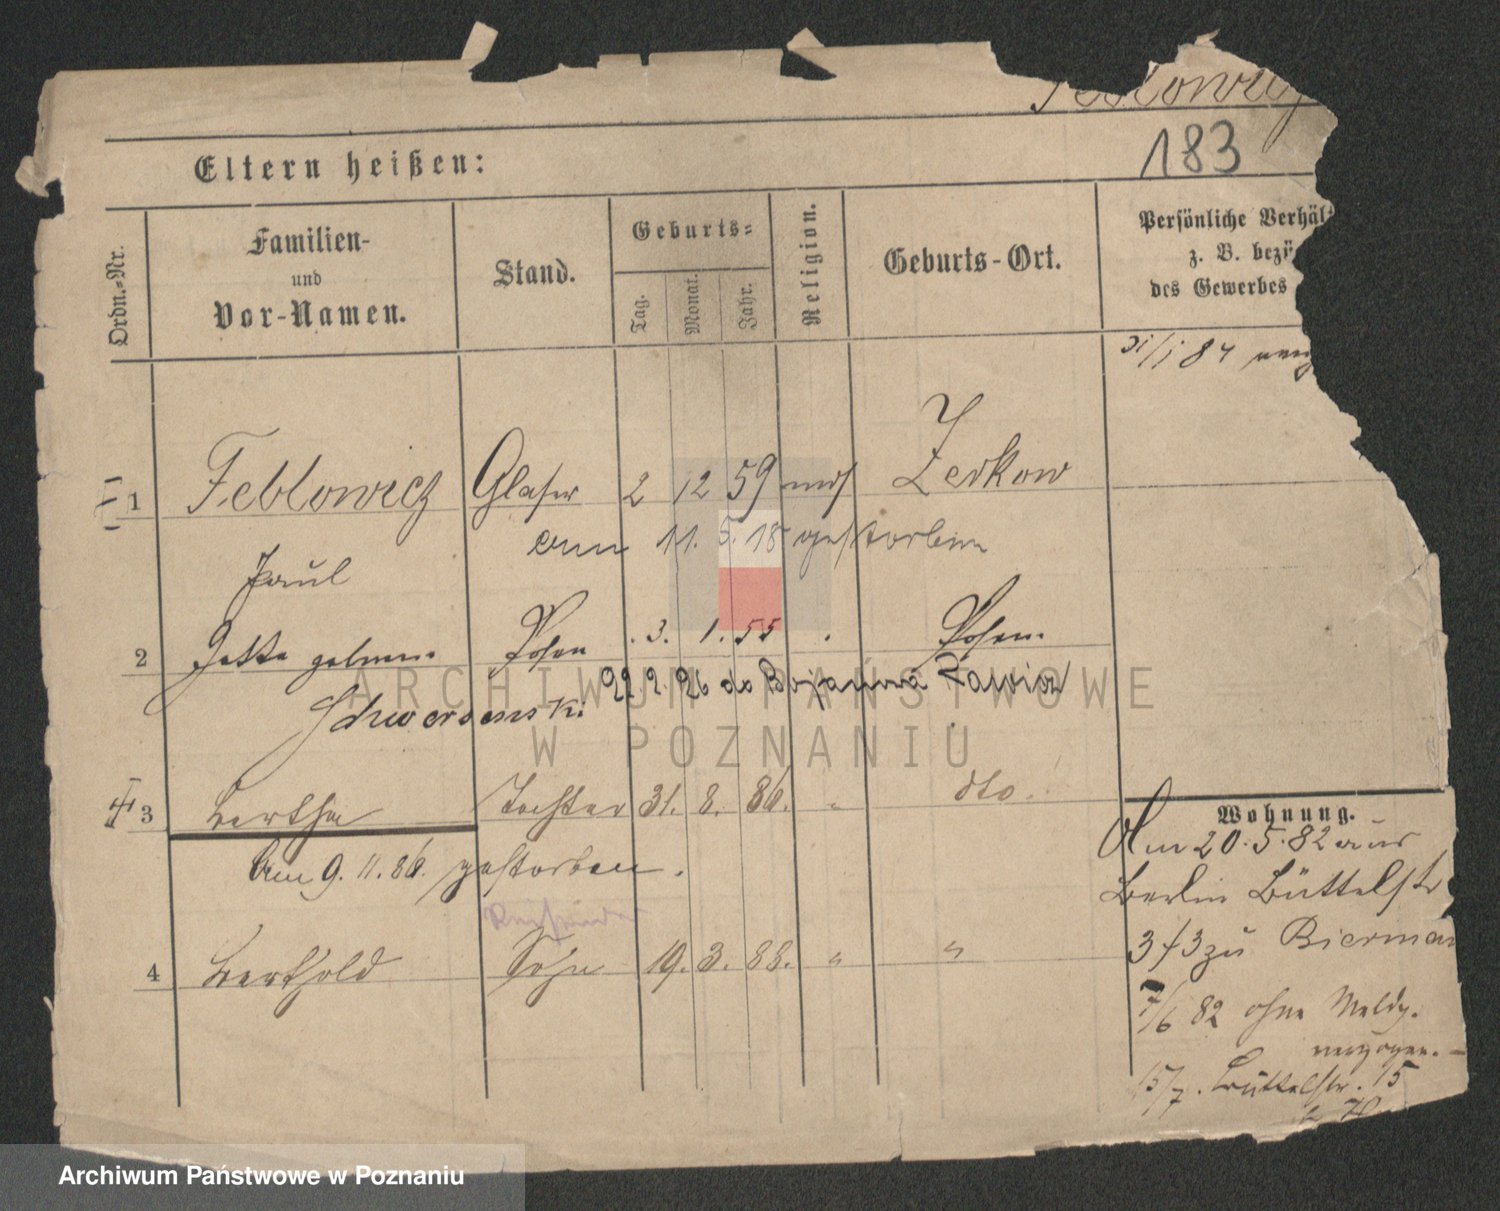 183
Eltern heißen:
Ordn.-Nr.
Familien-
und
Vor-Namen.
Stand.
Geburts-
Tag.
Monat.
Jahr.
Religion.
Geburts-Ort.
Persönliche Verhäl
z. B. bezü
des Gewerbes
1 Feblowicz Glaser 2 12 59 mos Zerkow
am 11. 5. 18 gestorben
Paul
2 Jette geboren. Posen 3. 1. 55 Posen.
22. 2. 26 do Bojanowa Rawicz
Schwersenski
3 Bertha Tochter 31. 8. 86. " dto.
Am 9. 11. 86. gestorben.
Reisender
4 Berthold Sohn 19. 3. 88. " "
Wohnung.
Am 20. 5. 82 aus
Berlin Büttelstr
3 f 3 zu Bierman
7/6 82 ohne Meldg.
verzogen. –
15/7. Büttelstr. 15
ARCHIWUM PAŃSTWOWE
W POZNANIU
Archiwum Państwowe w Poznaniu